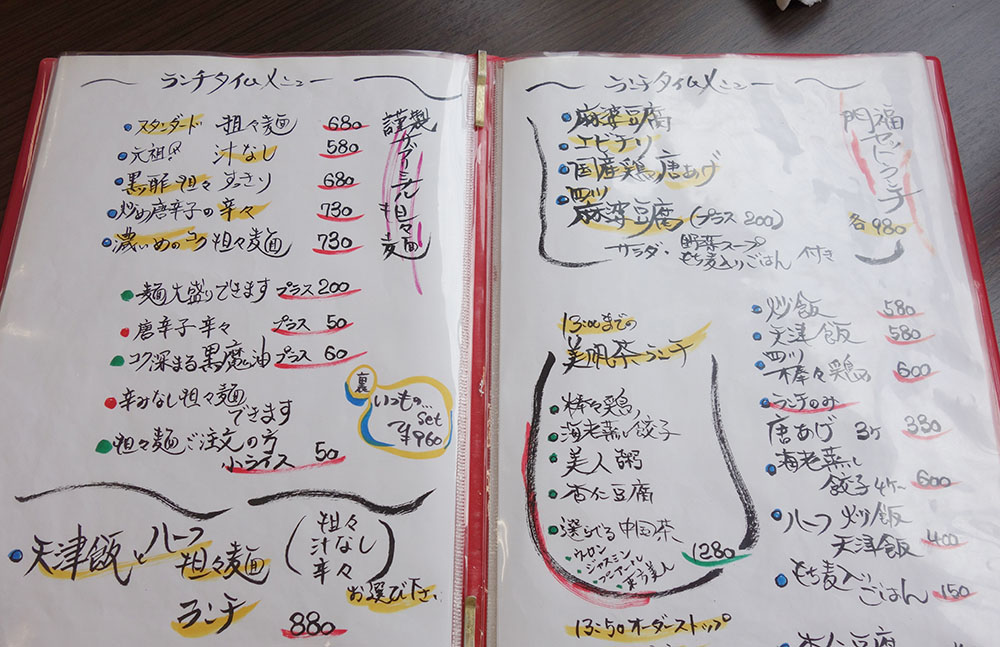 ランチタイムメニュー
スタンダード 担々麺 680
元祖! 汁なし 580
黒酢担々 すっきり 680
炒め唐辛子の辛々 730
濃いめのコク担々麺 730
謹製
担々麺
麺大盛りできます プラス200
唐辛子辛々 プラス 50
コク深まる黒魔油 プラス 60
辛みなし担々麺
できます
担々麺ご注文の方
小ライス 50
裏
いつもの…
set
で¥960
天津飯とハーフ
担々麺
ランチ
880
担々
汁なし
辛々
お選び下さい
ランチタイムメニュー
麻婆豆腐
エビチリ
国産鶏唐あげ
四川
麻婆豆腐(プラス200)
サラダ・野菜スープ
もち麦入りごはん 付き
門福
ランチ
各980
13:00までの
美帆茶ランチ
棒々鶏
海老蒸し餃子
美人粥
杏仁豆腐
選らべる中国茶
ウーロン
ジャスミン
プーアール
東方美人
1280
13:50オーダーストップ
炒飯 580
天津飯 580
四川
棒々鶏 600
ランチのみ
唐あげ 3ケ 330
海老蒸し
餃子4ケ 600
ハーフ 炒飯
天津飯 400
もち麦入りごはん 150
杏仁豆腐